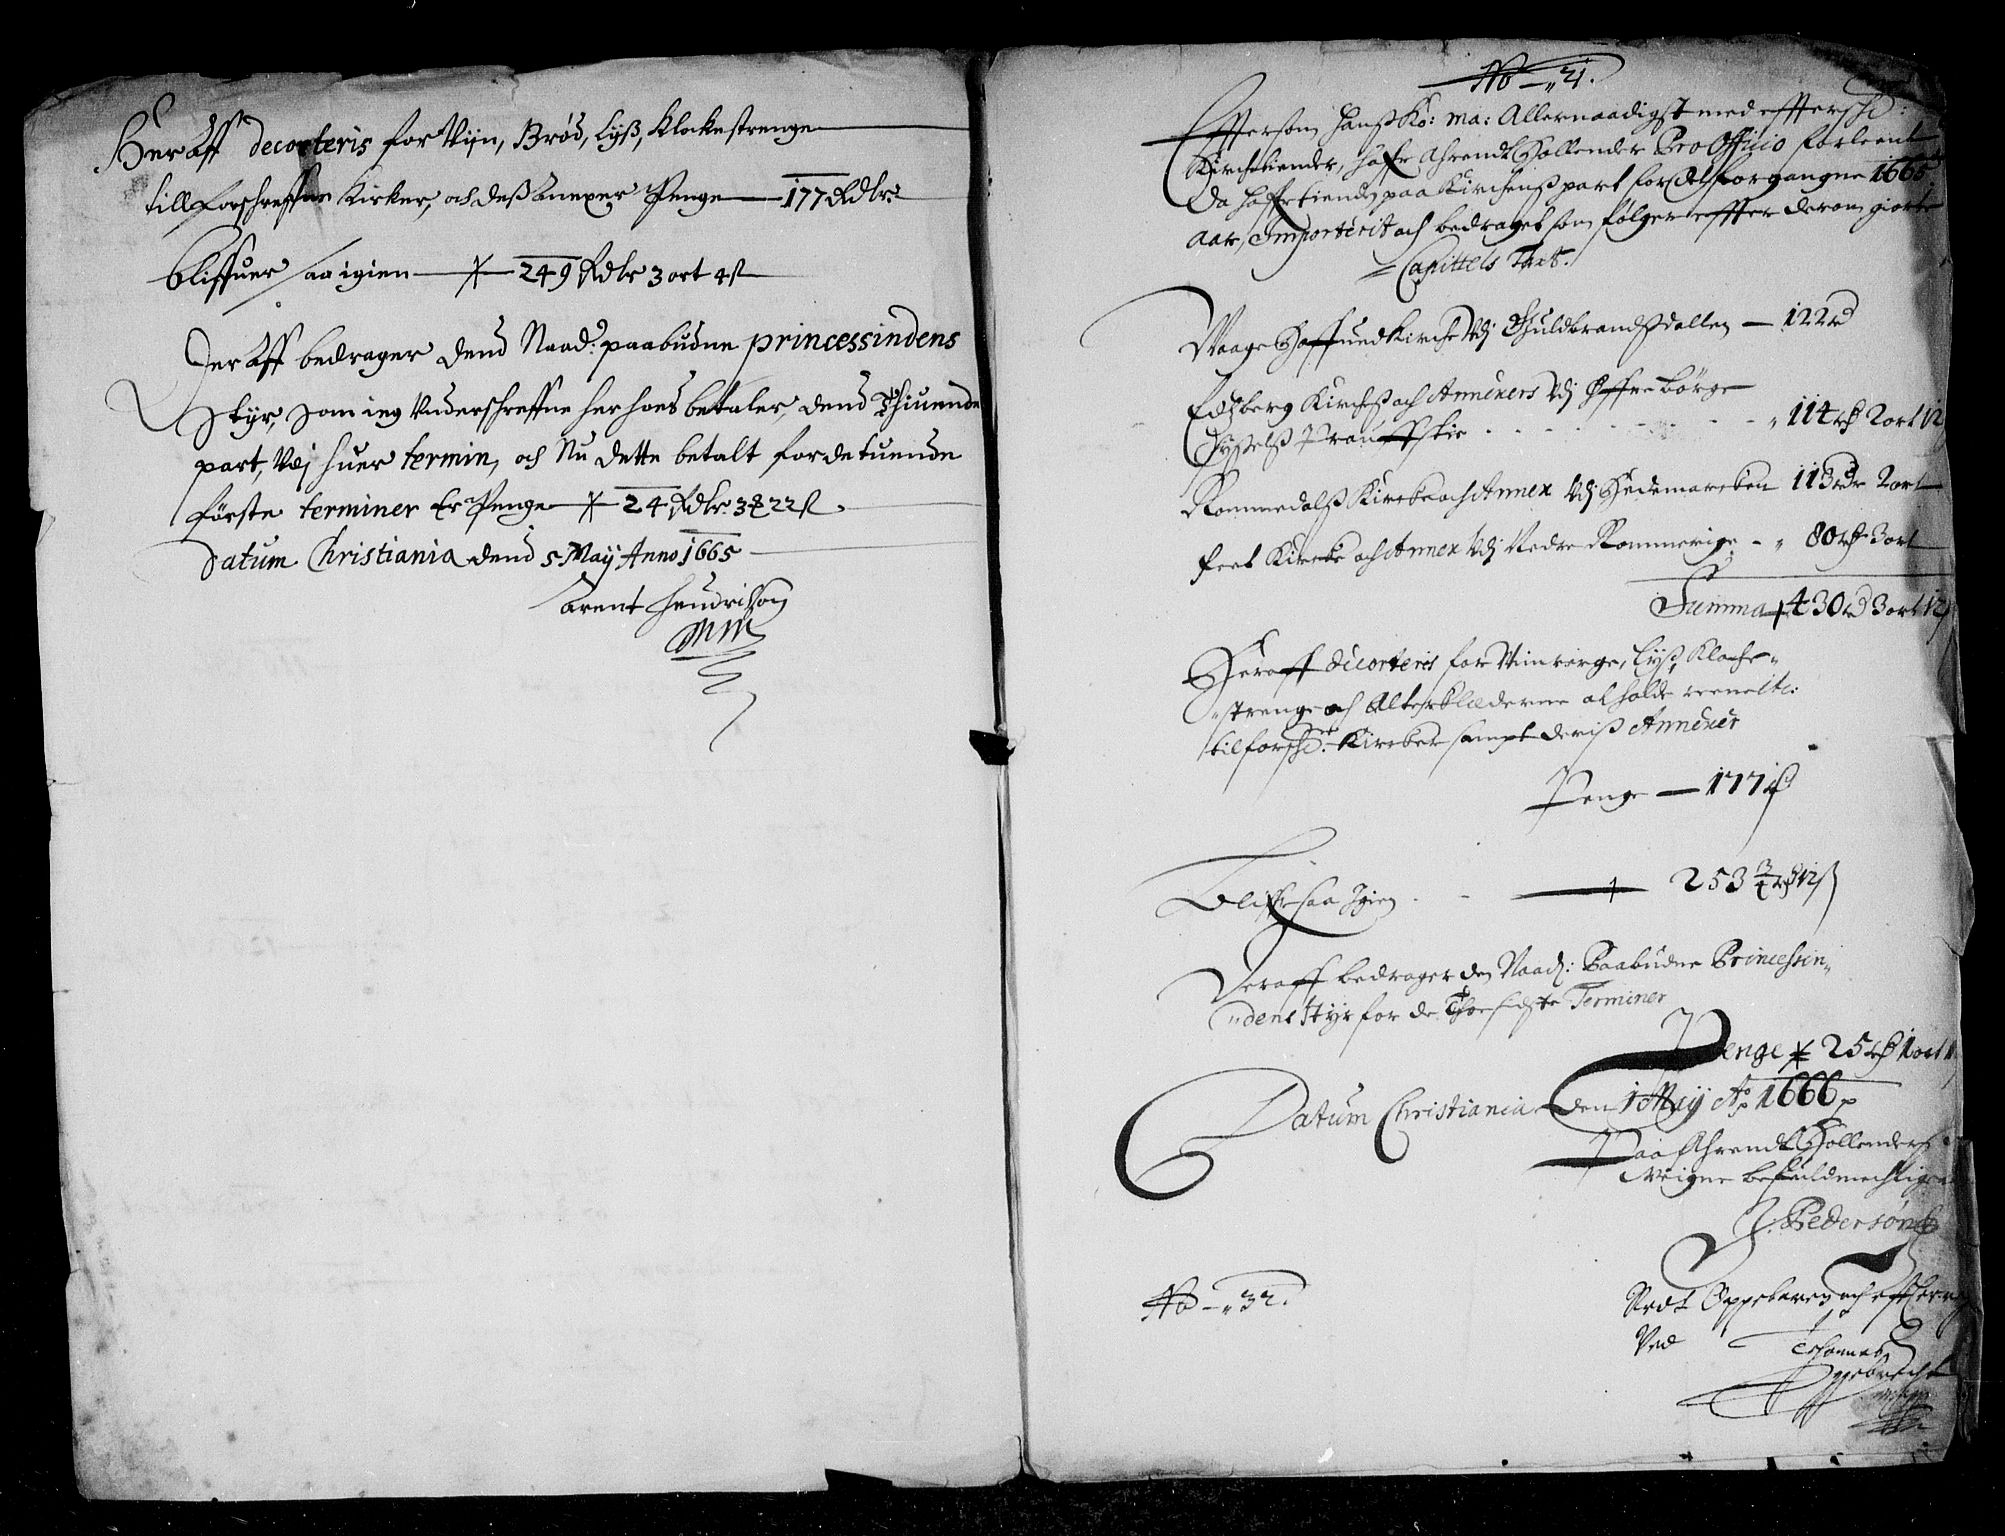 Her Aff decorteris for Viin, Brød, Lyß, Klockestrenge
till forschreffne Kirker, och deß annexer Penge — 177 Rdlr
bliffuer saa igien — 249 Rdlr 3 ort 4 ß
Her Aff bedrager dend Naad: paabudne princessindens
Styr, som ieg Underschreffne her hoes betaler, dend Thiuende
part, Udj huer termin, och Nu dette betalt for de tuende
første terminer Er Penge — 24 Rdlr. 3 ₰ 22 ß.
Datum Christiania dend 5 Maij Anno 1665
Arent Hendrichson
No — 31.
Efftersom Hanß Ko: Ma: Allernaadigst med effterschr:
Kirchetiender, haffr Ahrendt Hollender Pro Officio forleent
Da haffr tienden paa Kirchenß part for Alt forgangne 1665
Aar, Importerit och bedraget som følger effter derom giorte
Capittels Taxt.
Waage Hoffued Kirche Udj Guldbrandßdallen — 122 rd
Edzberg Kircheß och Annexers Udj Øffre Börge
Syßelß Prouffstie . . . . . . 114 rd 2 ort 12
Rommedalß Kircke och Annex Udj Hedemarcken 113 rdr 2 ort
Feet Kircke och Annex Udj Nedre Rommerige - 80 rd 3 ort
Summa 430 rd 3 ort 12 ß
Heraff decorteris for Viin, Lyß, Klocke-
strenge och Alterklæderne at holde reene etc:
til forschr: Kircker sampt deriß Annexer
Penge — 177 rd
Bliffr saa Igien . - — 253 3/4 rd 12 ß
Deraff bedrager den Naad: Paabudne Princessin-
dens Styr for de Thoe sidste Terminer
Penge 25 rd 1 ort
Datum Christiania den 1 Maij Ao 1666
Paa Ahrendt Hollenders
Weigne befuldmechtiget
Pedersøn
No — 32.
Ved
Johannes